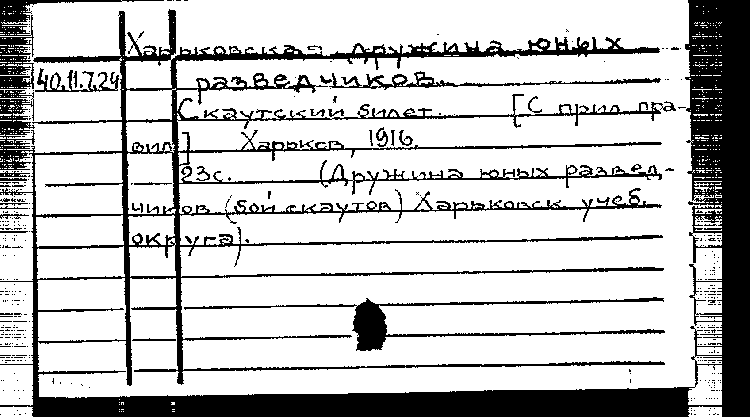 Харьковская дружина юных
40.11.7.24 разведчиков.
Скаутский билет. [С прил. пра-
вил] Харьков, 1916.
23с. (Дружина юных развед-
чиков (бой-скаутов) Харьковск. учеб.
округа).